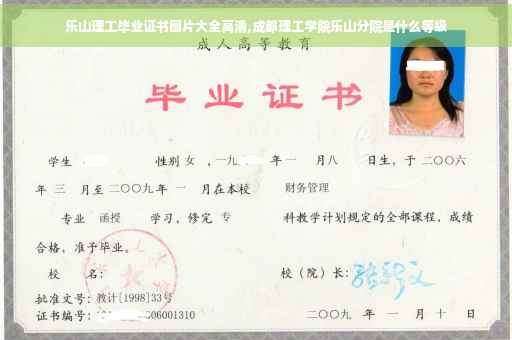 乐山理工毕业证书图片大全高清,成都理工学院乐山分院是什么等级
成人高等教育
毕业证书
学生 性别 女 ,一九 年 一 月八 日生，于 二〇〇六
年 三 月至 二〇〇九 年 一 月在本校 财务管理
专业 函授 学习，修完 专 科教学计划规定的全部课程，成绩
合格，准予毕业。
校 名： 校（院）长：
批准文号：教计[1998]33号
证书编号： 06001310 二〇〇九 年 一 月 十 日